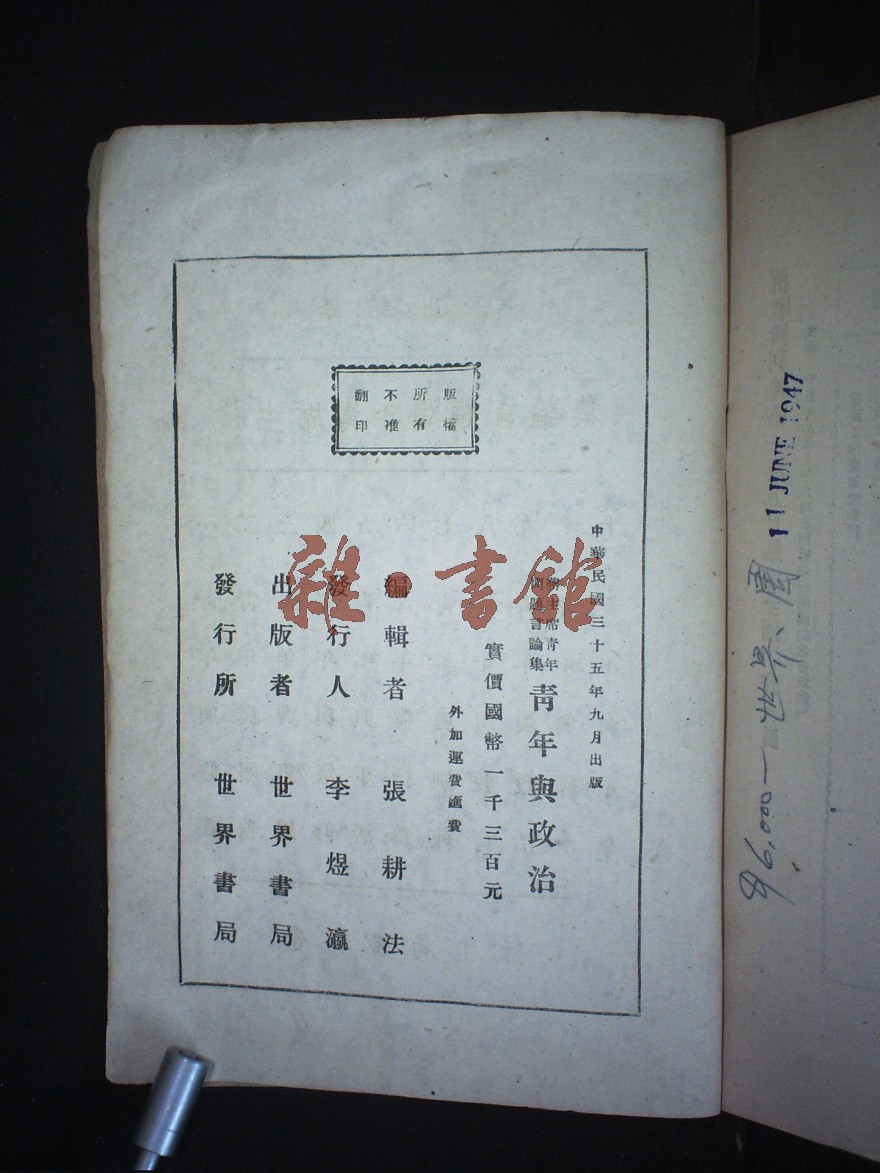 版權
所有
不准
翻印
中華民國三十五年九月出版
主席青年
問題言論集
青年與政治
實價國幣一千三百元
外加運費匯費
編輯者 張耕法
發行人 李煜瀛
出版者 世界書局
發行所 世界書局
雜·書館
11 JUNE 1947